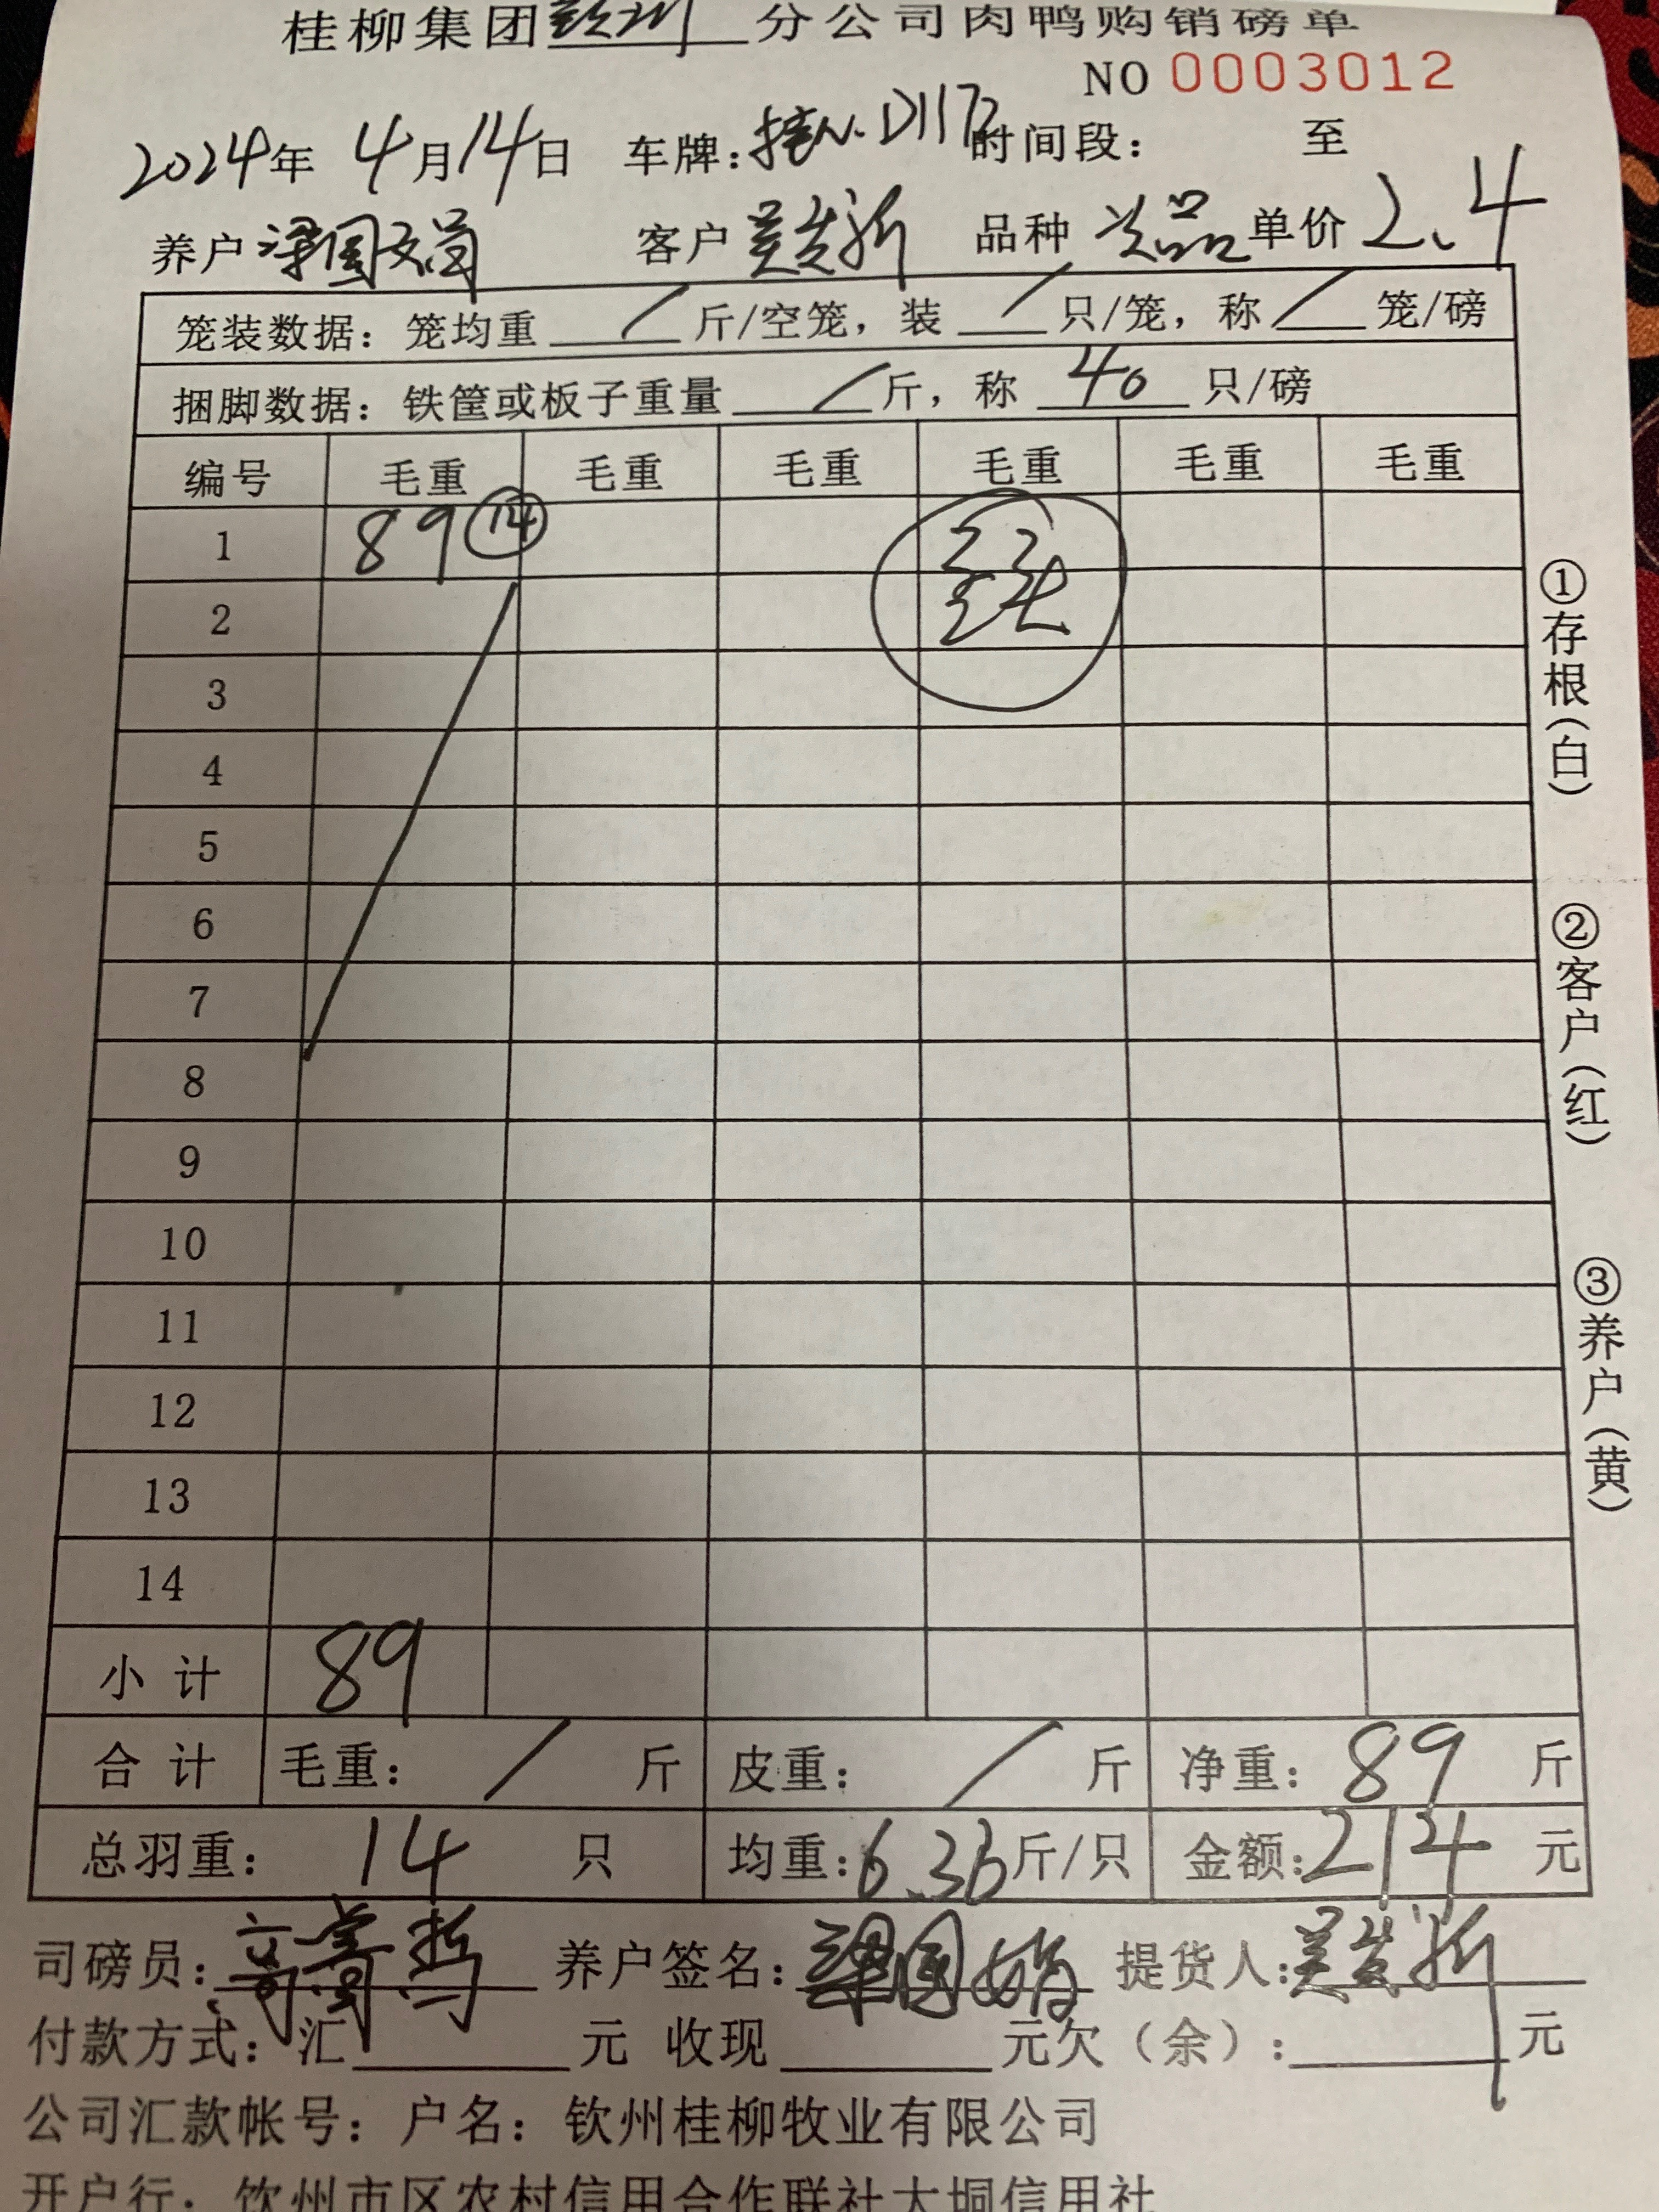 桂柳集团钦州分公司肉鸭购销磅单
NO 0003012
2024年 4月14日 车牌: 桂N.D117 时间段: 至
养户 梁国娟 客户 吴发新 品种 次品 单价 2.4
笼装数据: 笼均重 / 斤/空笼, 装 / 只/笼, 称 / 笼/磅
捆脚数据: 铁筐或板子重量 / 斤, 称 40 只/磅
编号 毛重 毛重 毛重 毛重 毛重 毛重
1 89 ⑭
2
3
4
5
6
7
8
9
10
11
12
13
14
小计 89
合计 毛重: / 斤 皮重: / 斤 净重: 89 斤
总羽重: 14 只 均重: 6.36 斤/只 金额: 214 元
司磅员: 养户签名: 梁国娟 提货人: 吴发新
付款方式: 汇 元 收现 元欠(余): 元
公司汇款帐号: 户名: 钦州桂柳牧业有限公司
开户行: 钦州市区农村信用合作联社大垌信用社
①存根(白)
②客户(红)
③养户(黄)